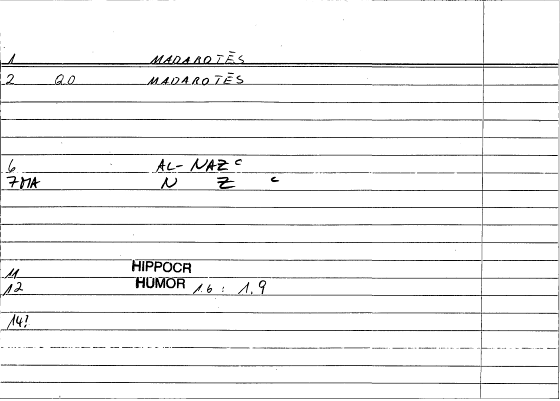 1 MADAROTĒS
2 QO MADAROTĒS
6 AL-NAZ ᶜ
7MA N Z ᶜ
11 HIPPOCR
12 HUMOR 1.6 : 1.9
14?